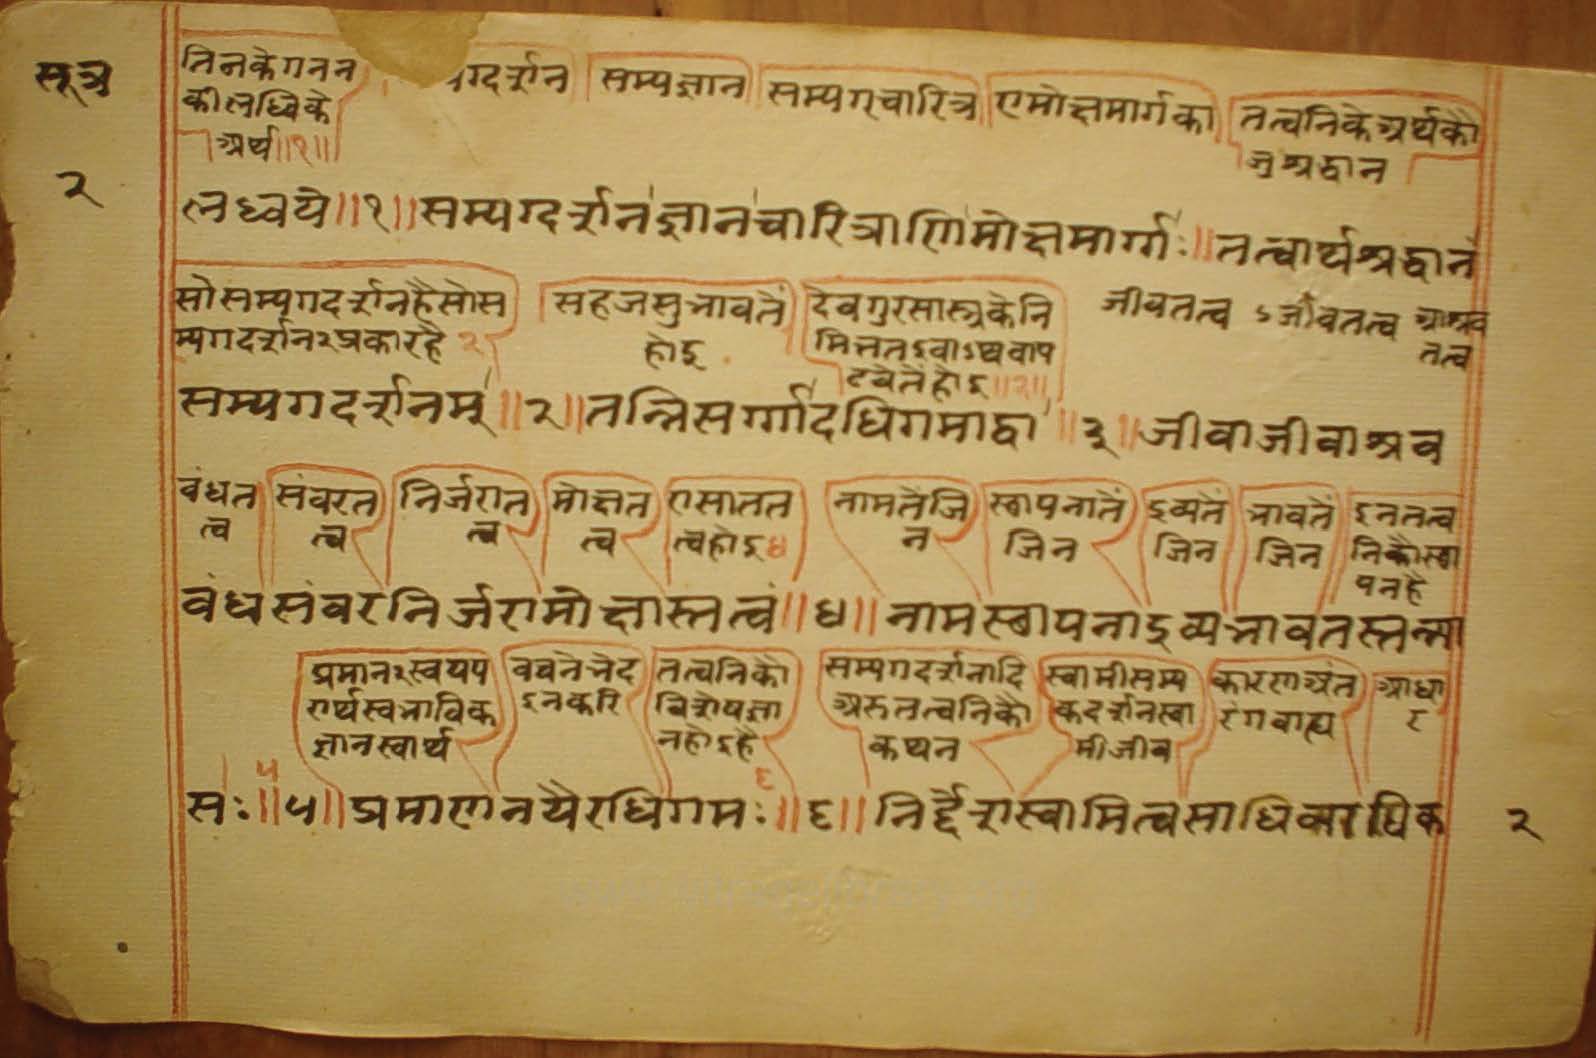 सूत्र
तिनकेगनन
की लध्विके
अर्थ॥१॥
ग्दर्शन सम्यज्ञान सम्यग्चारित्र एमोक्षमार्गका तत्वनिकेअर्थकौ
जुश्रद्धान
२
लध्वये॥१॥सम्यग्दर्शनज्ञानचारित्राणिमोक्षमार्ग्गः॥तत्वार्थश्रद्धानं
सोसम्यगदर्शनहैसोस सहजसुभावतें देवगुरसास्त्रकेनि जीवतत्व ऽजीवतत्व आश्रव
म्यगदर्शन२प्रकारहै २ होइ मित्ततइवाऽथवाप तत्व
टवेतेंहोइ॥३॥
सम्यगदर्शनम्॥२॥तन्निसर्ग्गादधिगमाद्वा॥३॥जीवाजीवाश्रव
वंधत संवरत निर्जरात मोक्षत एसातत नामतेंजि स्थापनातें द्रव्यतें भावतें इनतत्व
त्व त्व त्व त्व त्वहोइ४ न जिन जिन जिन निकौस्था
पनहै
वंधसंवरनिर्जरामोक्षास्तत्वं॥४॥नामस्थापनाद्रव्यभावतस्तन्या
प्रमान२स्वयप ववनेभेद तत्वनिकौ सम्यगदर्शनादि स्वामीसम्य कारणअंत आधा
रार्थस्वभाविक इनकरि विशेषज्ञा अरुतत्वनिकौ कदर्शनस्वा रंगवाह्य र
ज्ञानस्वार्थ नहोइहै कथन मीजीव
५ ६
सः॥५॥प्रमाणनयैरधिगमः॥६॥निर्द्देशस्वामित्वसाधिकारधिक
२